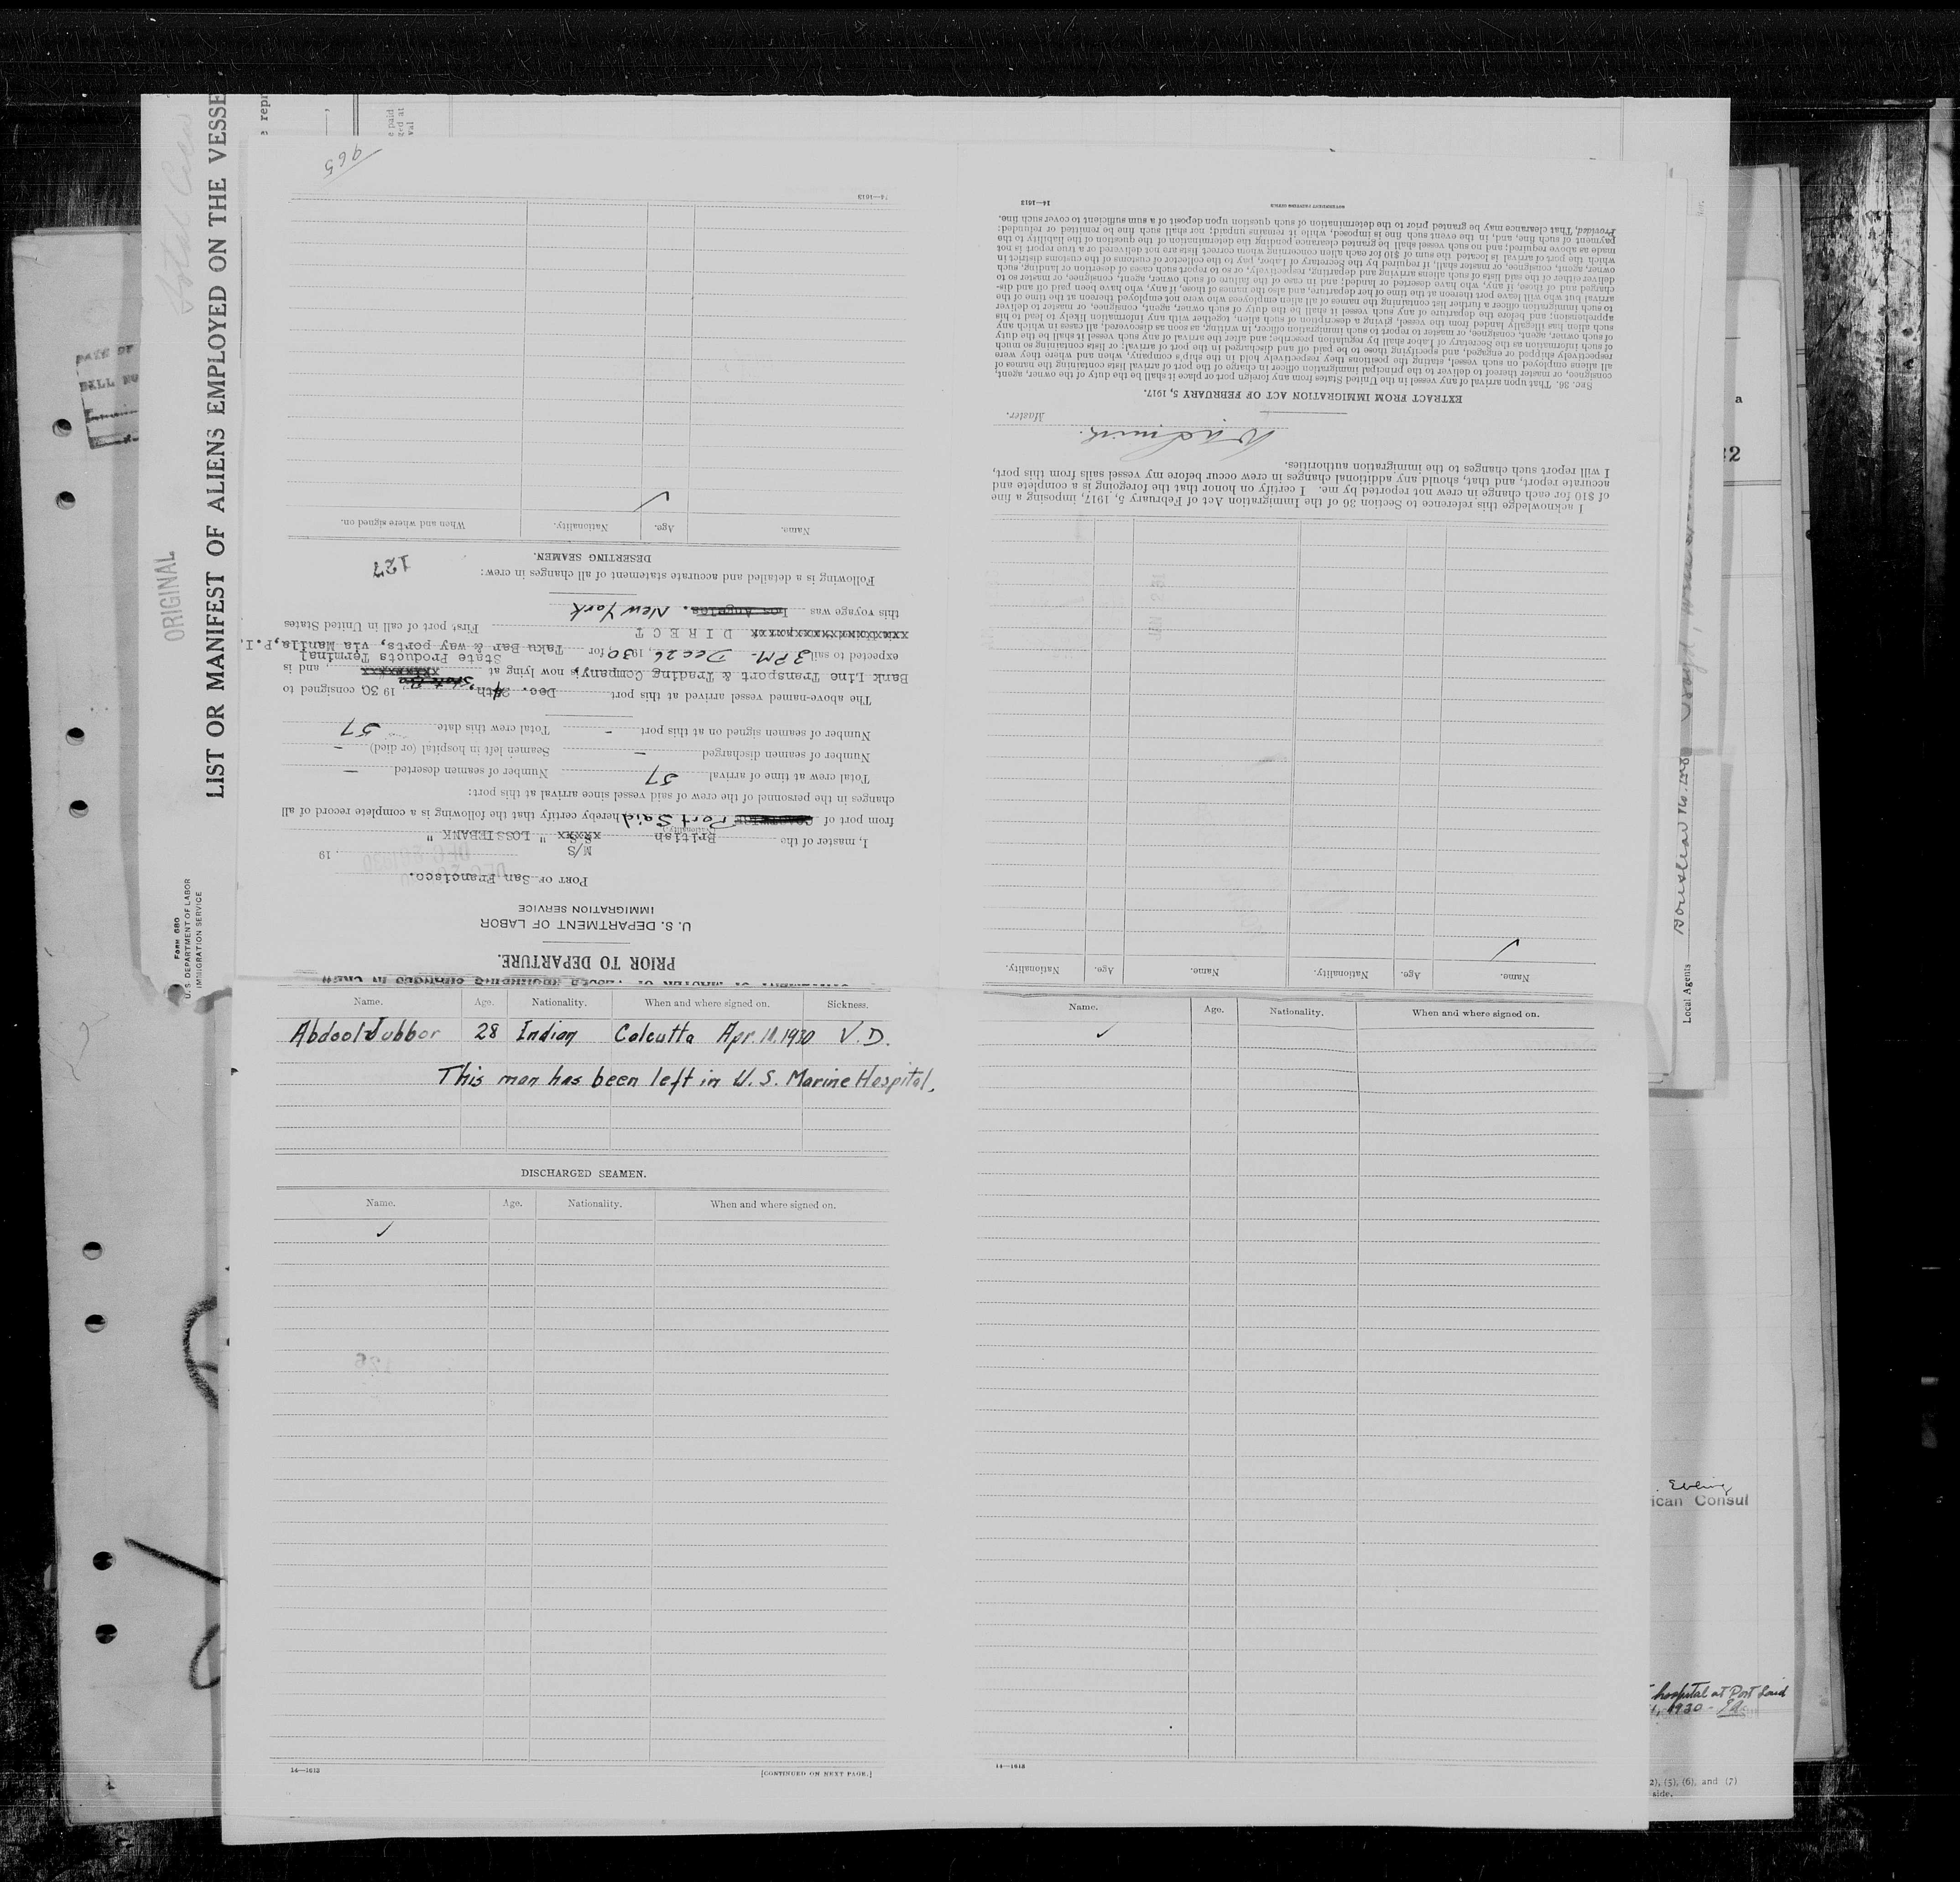 LIST OR MANIFEST OF ALIENS EMPLOYED ON THE VESSE
ORIGINAL
Total Crew
FORM 680
U. S. DEPARTMENT OF LABOR
IMMIGRATION SERVICE
PRIOR TO DEPARTURE.
U. S. DEPARTMENT OF LABOR
IMMIGRATION SERVICE
PORT OF San Francisco.
19
M/S
I, master of the British " LOSSIEBANK "
(Nationality)
from port of Port Said hereby certify that the following is a complete record of all
changes in the personnel of the crew of said vessel since arrival at this port:
Total crew at time of arrival 57 Number of seamen deserted —
Number of seamen discharged — Seamen left in hospital (or died) —
Number of seamen signed on at this port - Total crew this date 57
The above-named vessel arrived at this port Dec. 1930 consigned to
Bank Line Transport & Trading Company; is now lying at , and is
State Products Terminal
expected to sail 3 PM. Dec 26, 1930 for Taku Bar & way ports, via Manila, P.I.
DIRECT First port of call in United States
this voyage was Los Angeles. New York
Following is a detailed and accurate statement of all changes in crew:
127
DESERTING SEAMEN.
Name. Age. Nationality. When and where signed on.
✓
14—1613
965
Name. Age. Nationality. Name. Age. Nationality.
✓
I acknowledge this reference to Section 36 of the Immigration Act of February 5, 1917, imposing a fine
of $10 for each change in crew not reported by me. I certify on honor that the foregoing is a complete and
accurate report, and that, should any additional changes in crew occur before my vessel sails from this port,
I will report such changes to the immigration authorities.
Master.
EXTRACT FROM IMMIGRATION ACT OF FEBRUARY 5, 1917.
Sec. 36. That upon arrival of any vessel in the United States from any foreign port or place it shall be the duty of the owner, agent,
consignee, or master thereof to deliver to the principal immigration officer in charge of the port of arrival lists containing the names of
all aliens employed on such vessel, stating the positions they respectively hold in the ship's company, when and where they were
respectively shipped or engaged, and specifying those to be paid off and discharged in the port of arrival; or lists containing so much
of such information as the Secretary of Labor shall by regulation prescribe; and after the arrival of any such vessel it shall be the duty
of such owner, agent, consignee, or master to report to such immigration officer, in writing, as soon as discovered, all cases in which any
such alien has illegally landed from the vessel, giving a description of such alien, together with any information likely to lead to his
apprehension; and before the departure of any such vessel it shall be the duty of such owner, agent, consignee, or master to deliver
to such immigration officer a further list containing the names of all alien employees who were not employed thereon at the time of the
arrival but who will leave port thereon at the time of her departure, and also the names of those, if any, who have been paid off and dis-
charged and of those, if any, who have deserted or landed; and in case of the failure of such owner, agent, consignee, or master so to
deliver either of the said lists of such aliens arriving and departing, respectively, or so to report such cases of desertion or landing, such
owner, agent, consignee, or master shall, if required by the Secretary of Labor, pay to the collector of customs of the customs district in
which the port of arrival is located the sum of $10 for each alien concerning whom correct lists are not delivered or a true report is not
made as above required; and no such vessel shall be granted clearance pending the determination of the question of the liability to the
payment of such fine, and, in the event such fine is imposed, while it remains unpaid; nor shall such fine be remitted or refunded:
Provided, That clearance may be granted prior to the determination of such question upon deposit of a sum sufficient to cover such fine.
14—1613 GOVERNMENT PRINTING OFFICE
Name. Age. Nationality. When and where signed on. Sickness.
Abdool Jubbor 28 Indian Calcutta Apr. 11. 1930 V. D.
This man has been left in U. S. Marine Hospital.
DISCHARGED SEAMEN.
Name. Age. Nationality. When and where signed on.
✓
14—1613 [CONTINUED ON NEXT PAGE.]
Name. Age. Nationality. When and where signed on.
✓
14—1613
Local Agents
ican Consul
hospital at Port Said
1930
2), (5), (6), and (7)
side.